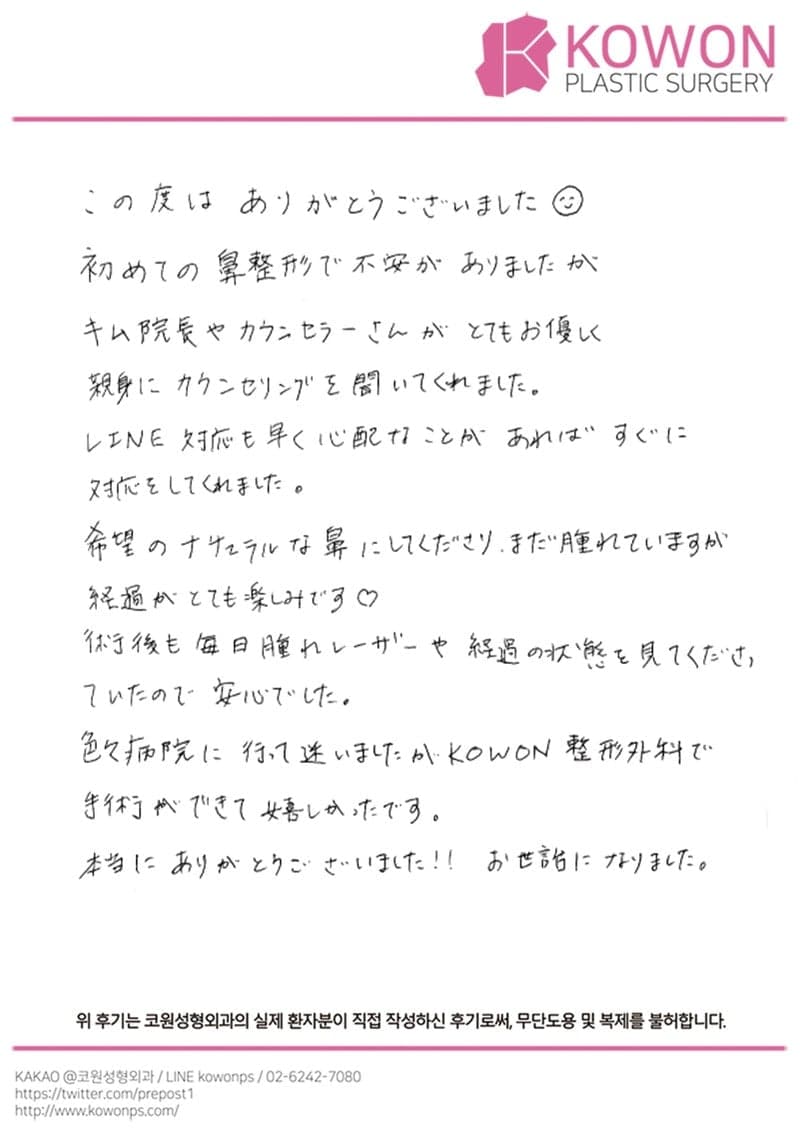 KOWON
PLASTIC SURGERY
この度は ありがとうございました
初めての鼻整形で不安が ありましたが
キム院長や カウンセラーさんが とてもお優しく
親身に カウンセリングを聞いてくれました。
LINE 対応も早く心配なことが あれば すぐに
対応をしてくれました。
希望の ナチュラルな鼻にしてくださり、まだ腫れていますが
経過がとても楽しみです♡
術後も毎日腫れレーザーや 経過の状態を見てくださっ
ていたので 安心でした。
色々病院に 行って迷いましたが KOWON 整形外科で
手術ができて嬉しかったです。
本当に ありがとうございました!! お世話に なりました。
위 후기는 코원성형외과의 실제 환자분이 직접 작성하신 후기로써, 무단도용 및 복제를 불허합니다.
KAKAO @코원성형외과 / LINE kowonps / 02-6242-7080
https://twitter.com/prepost1
http://www.kowonps.com/